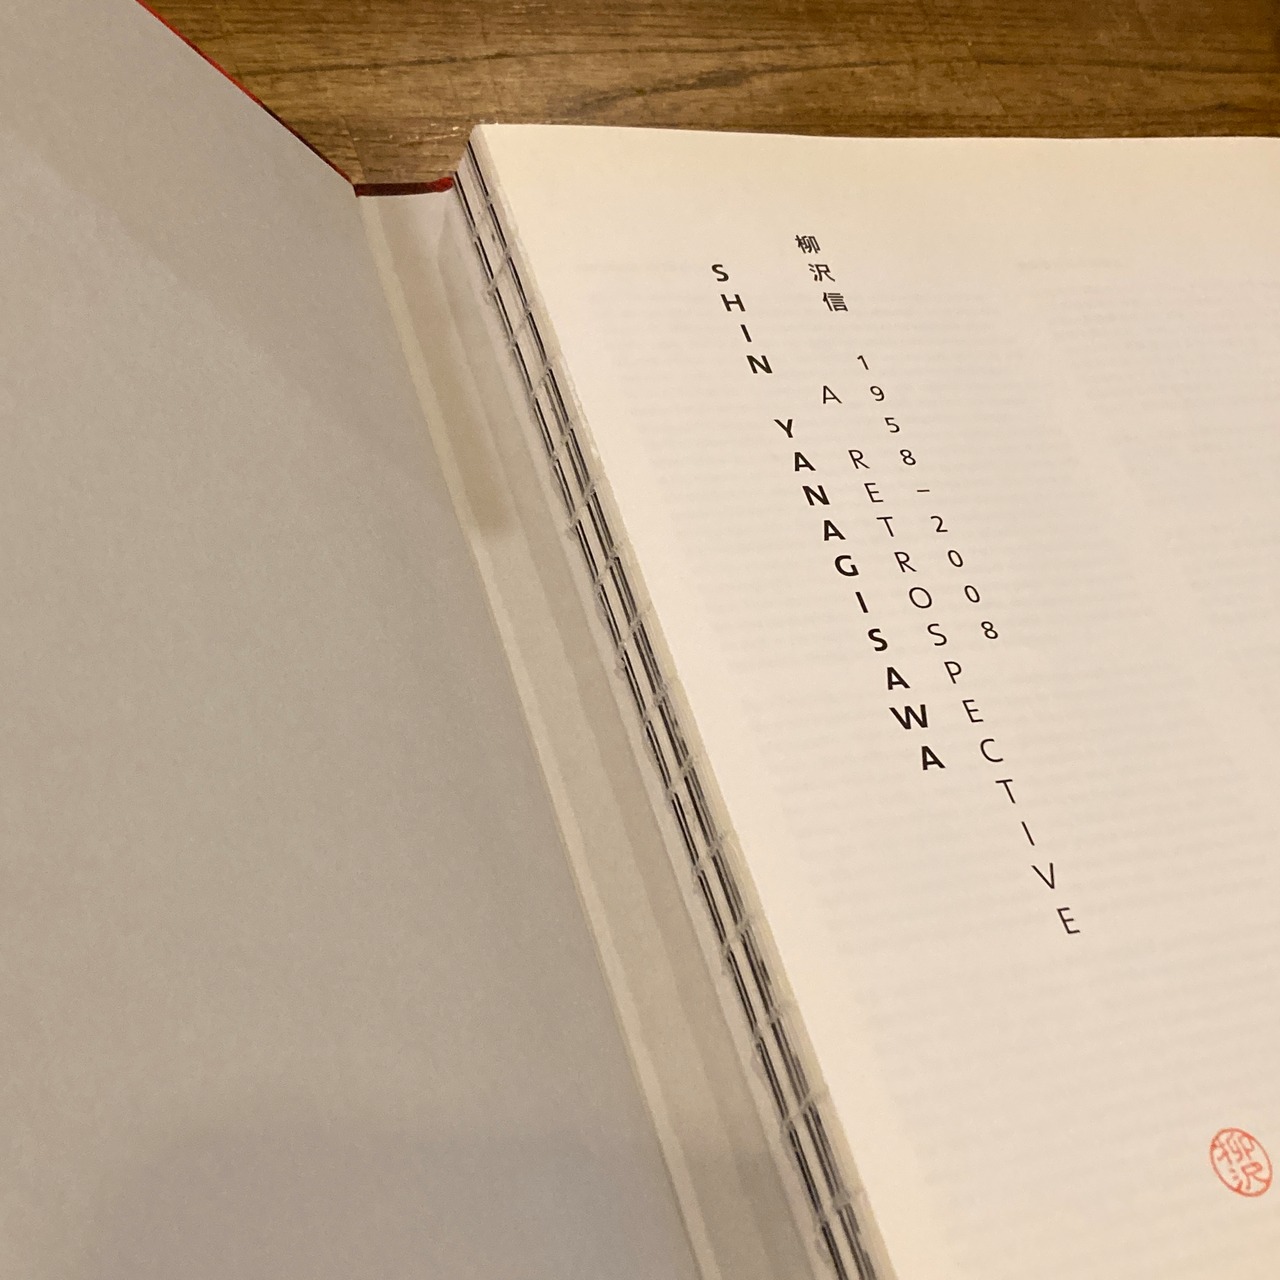 柳沢信 1958–2008
SHIN YANAGISAWA
A RETROSPECTIVE
柳沢